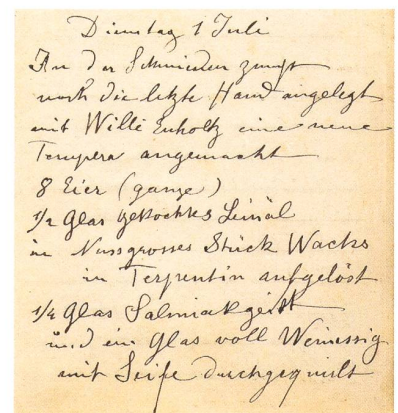 Dienstag 1 Juli
In der Schmieden zunft
noch die letzte Hand angelegt
mit Willi eine neue
Tempera angemacht
8 Eier (ganze)
1/2 Glas gekochtes Leinöl
in Nussgrosses Stück Wachs
in Terpentin aufgelöst
1/4 Glas Salmiakgeist
und ein Glas voll Weinessig
mit Seife durchgequirlt